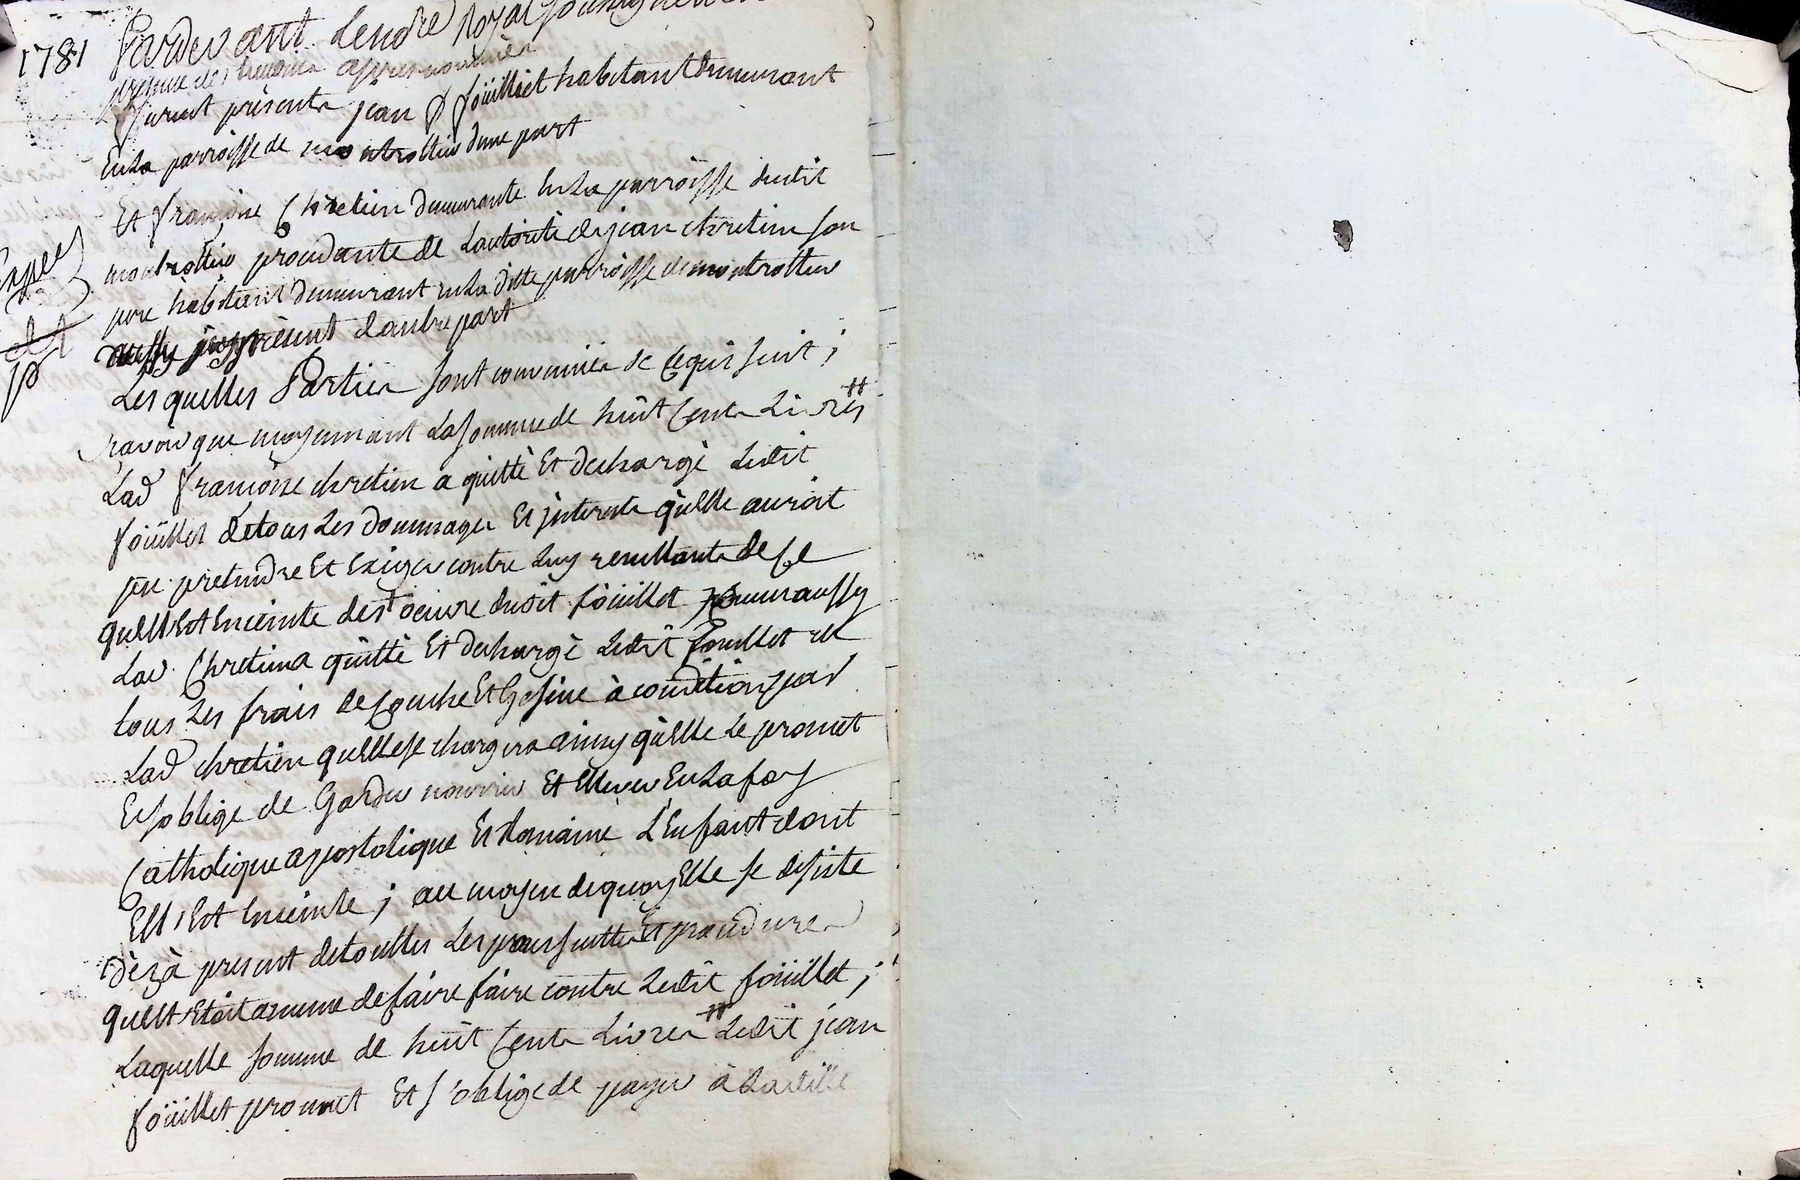 1781
Pardevant Lenore Royal soussigné
presence des temoins apres nommés
furent présents jean foüillet habitant demeurant
En La parroisse de montrottier dune part
Et francoise Chretien demeurante En La parroisse dudit
montrottier procedante de L'autorité de jean chretien son
pere habitant demeurant en La ditte parroisse de montrottier
aussy present dautre part
Les quelles Parties sont convenues de Ce qui suit ;
savoir que moyennant La somme de huit Cents Livres
Lad francoise chretien a quitté Et dechargé Ledit
foüillet de tous Les dommages Et jnterests qu'elle auroit
pu pretendre Et Exiger contre Luy resultants de Ce
quelle Est Enceinte des oeuvre dudit foüillet comme aussy
Lad Chretien a quitté Et dechargé Ledit foüillet de
tous Les frais de Couche Et Gesine à condition par
Lad chretien quelle se chargera ainsy qu'elle Le promet
Et soblige de Garder nourrir Et Elever En La foy
Catholique apostolique Et Romaine L'Enfant dont
Elle Est Enceinte ; au moyen de quoy Elle se desiste
dès à present de touttes Les poursuittes Et procedures
quelle Etoit a meme de faire faire contre Ledit foüillet ;
Laquelle somme de huit Cents Livres Ledit jean
foüillet promet Et s'oblige de payer à Laditte